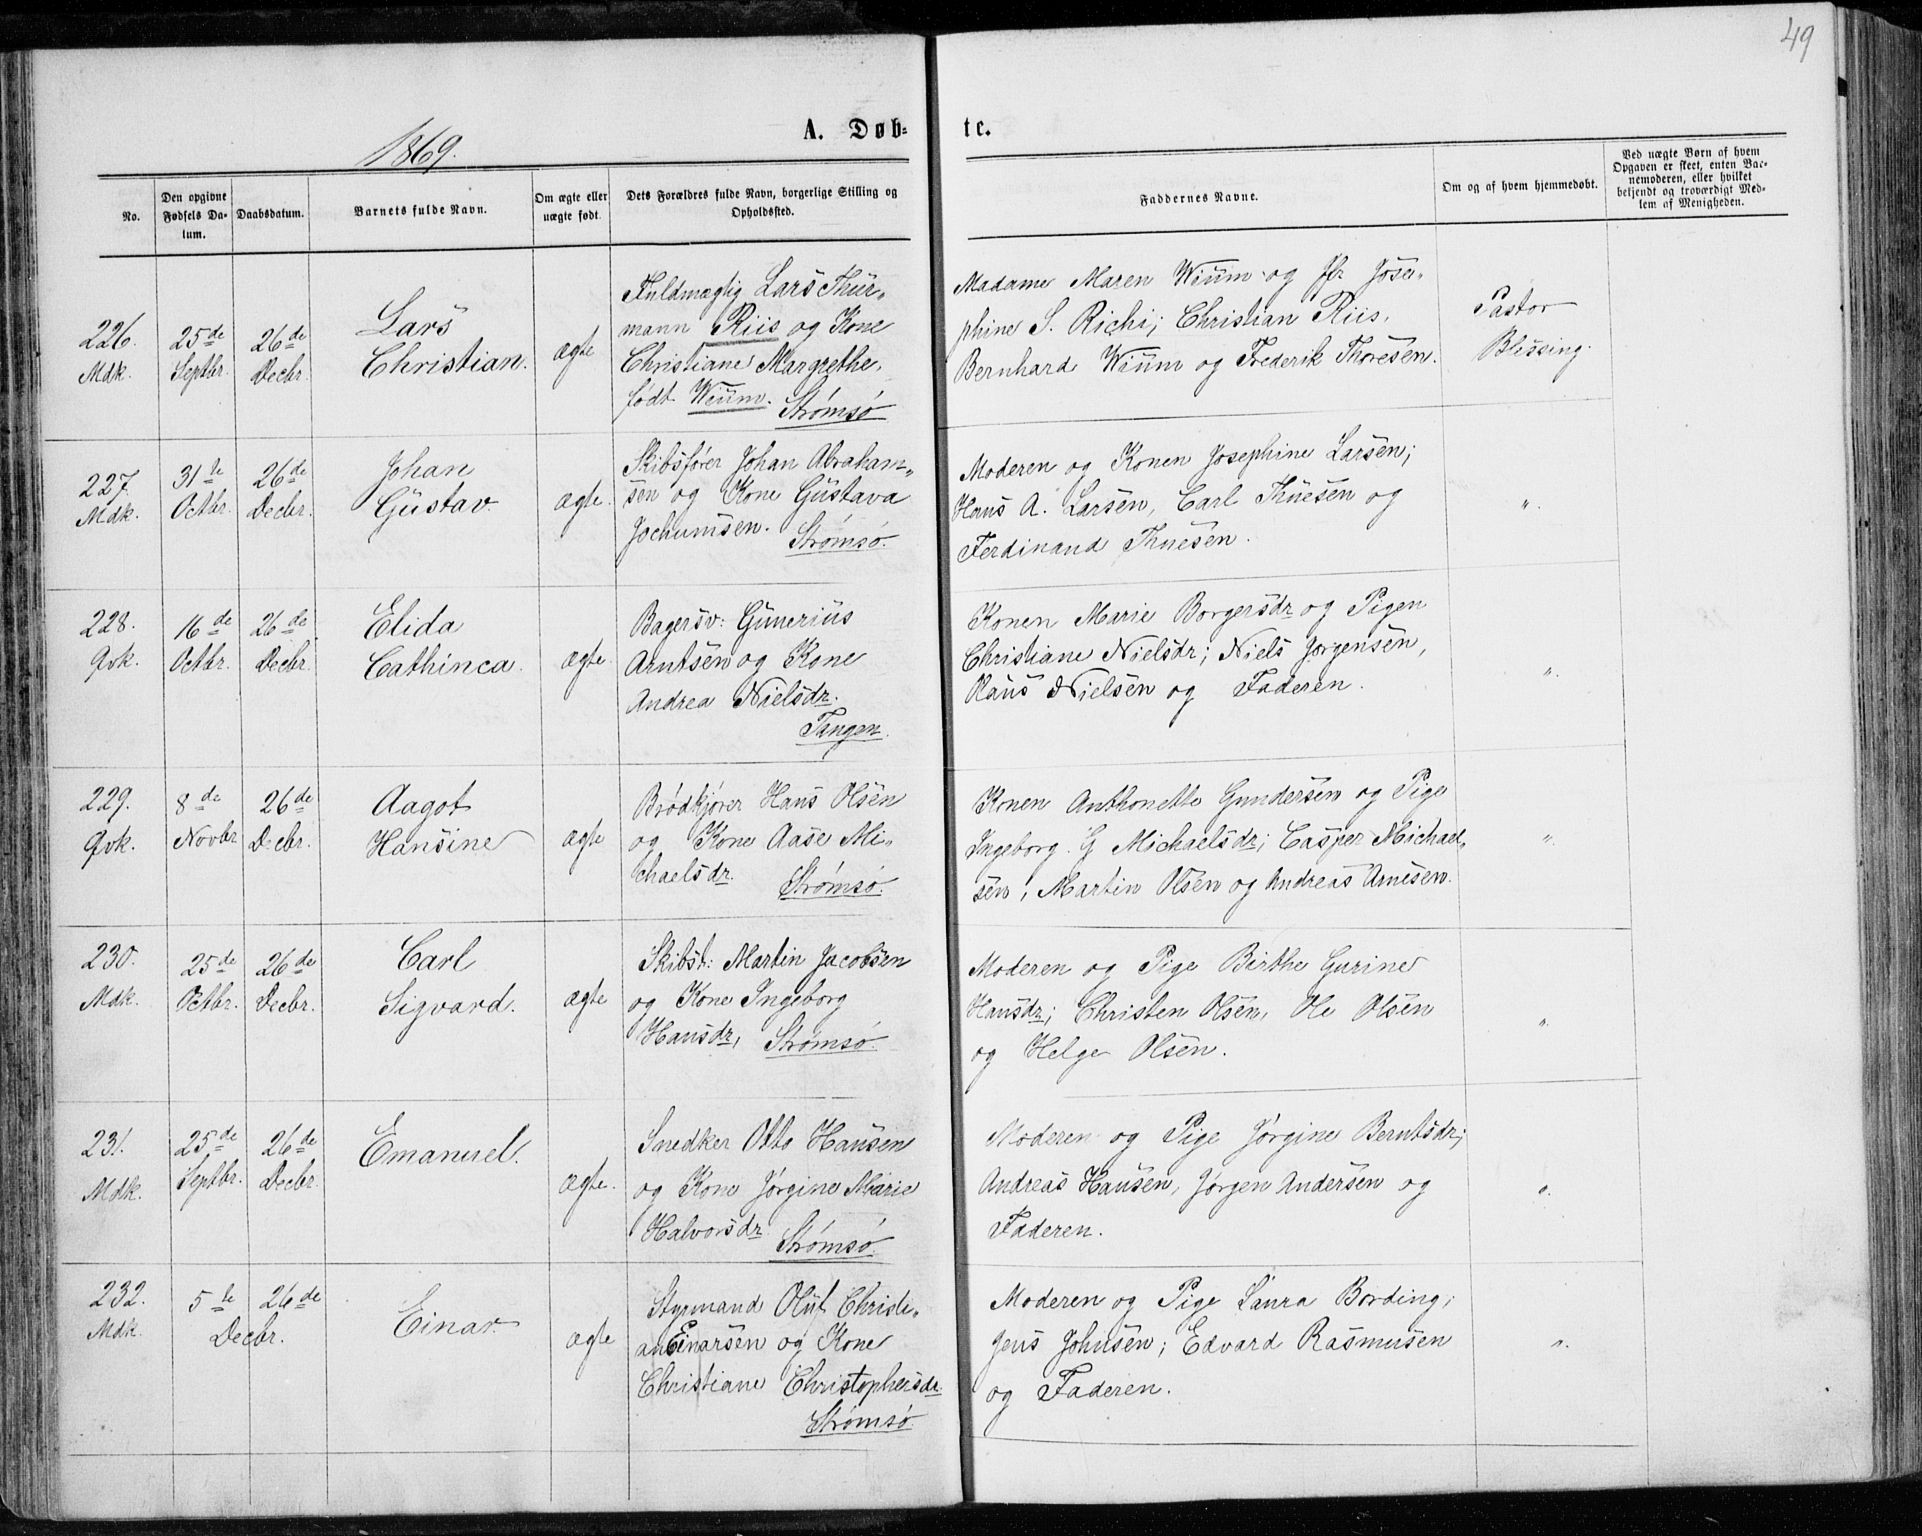 49
1869.
A. Døb-
te.
No.
Den opgivne Fødsels Da-tum.
Daabsdatum.
Barnets fulde Navn.
Om ægte eller uægte født.
Dets Forældres fulde Navn, borgerlige Stilling og Opholdssted.
Faddernes Navne.
Om og af hvem hjemmedøbt.
Ved uægte Børn af hvem Opgaven er skeet, enten Bar-nemoderen, eller hvilket bekjendt og troværdigt Med-lem af Menigheden.
226.
Mdk.
25de
Septbr.
26de
Decbr.
Lars
Christian.
ægte
Fuldmægtig Lars Thür-
mann Riis og Kone
Christiane Margrethe,
født Wiüm.
Strømsø
Madame Maren Wiüm og Jfr Jose-
phine S. Richi; Christian Riis,
Bernhard Wiüm og Frederik Thoresen.
Pastor
Blessing.
227.
Mdk.
31te
Octbr.
26de
Decbr.
Johan
Güstav.
ægte.
Skibsfører Johan Abraham-
sen og Kone Güstava
Jochumsen.
Strømsø.
Moderen og Konen Josephine Larsen;
Hans A. Larsen, Carl Thüesen og
Ferdinand Thuesen.
"
228.
Qvk.
16de
Octbr.
26de
Decbr.
Elida
Cathinca.
ægte.
Bagersv: Günerius
Arntsen og Kone
Andrea Nielsdr.
Tangen.
Konen Marie Borgersdr og Pigen
Christiane Nielsdr; Niels Jørgensen,
Olaüs Nielsen og Faderen.
"
229.
Qvk.
8de
Novbr
26de
Decbr.
Aagot
Hansine
ægte
Brødkjører Hans Olsen
og Kone Aase Mi-
chaelsdr.
Strømsø.
Konen Anthonette Gundersen og Pige
Ingeborg G Michaelsdr; Casper Michael-
sen, Martin Olsen og Andreas Arnesen.
"
230.
Mdk.
25de
Octbr.
26de
Decbr.
Carl
Sigvard.
ægte
Skibst: Martin Jacobsen
og Kone Ingeborg
Hansdr,
Strømsø.
Moderen og Pige Birthe Gurine
Hansdr; Christen Olsen, Ole Olsen
og Helge Olsen.
"
231.
Mdk.
25de
Septbr.
26de
Decbr.
Emanuel.
ægte.
Snedker Otto Hansen
og Kone Jørgine Marie
Halvorsdr.
Strømsø.
Moderen og Pige Jørgine Berntsdr;
Andreas Hansen, Jørgen Andersen og
Faderen.
"
232.
Mdk.
5te
26de
Decbr.
Einar.
ægte
Styrmand Olüf Christi-
an Einarsen og Kone
Christiane Christophersdr.
Strømsø.
Moderen og Pige Laura Bording;
Jens Johnsen; Edvard Rasmusen
og Faderen.
"